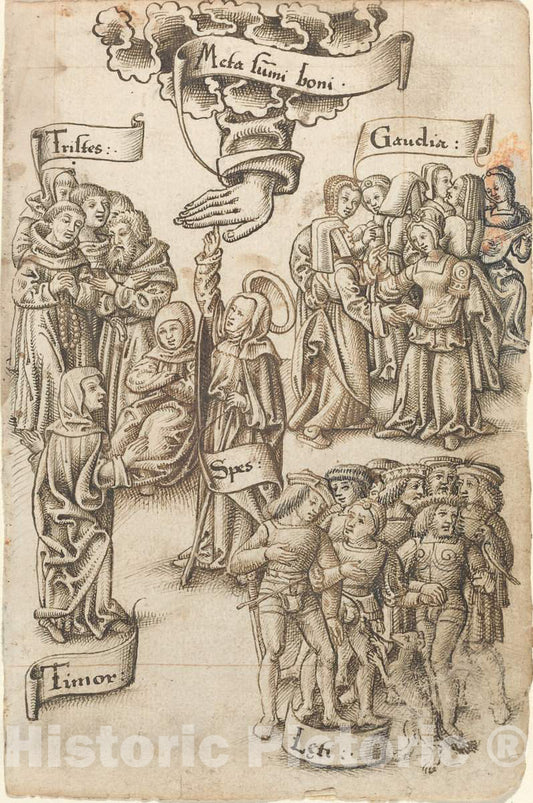 Meta sum̄i boni ·
Tristes :.
Gaudia :
Spes :
Timor :
Leti :.
Historic Pictoric ®